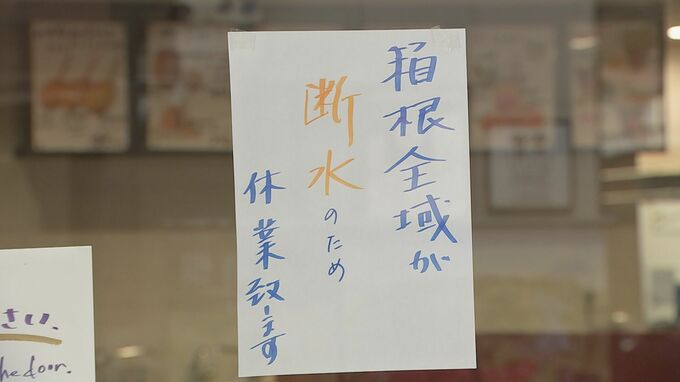 箱根全域が
断水のため
休業致します
さい.
he door.